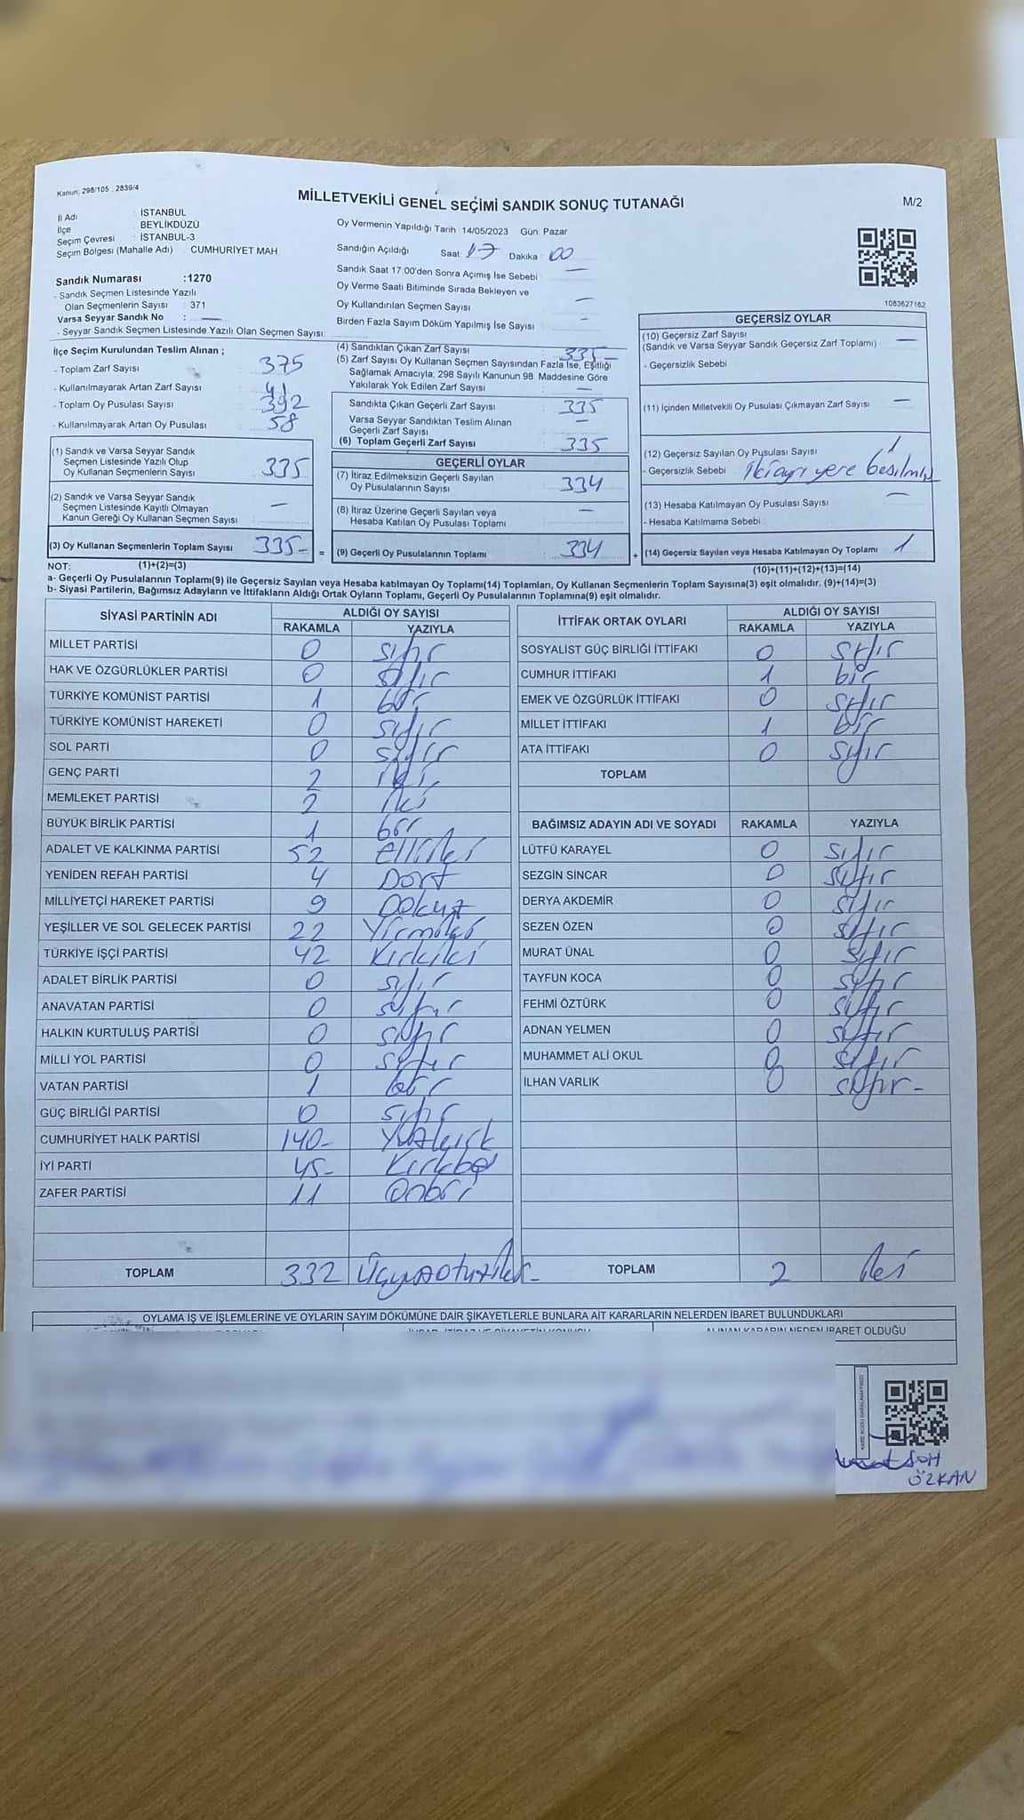 Kanun: 298/105 : 2839/4
MİLLETVEKİLİ GENEL SEÇİMİ SANDIK SONUÇ TUTANAĞI
M/2
İl Adı İSTANBUL
İlçe BEYLİKDÜZÜ
Seçim Çevresi İSTANBUL-3
Seçim Bölgesi (Mahalle Adı) CUMHURİYET MAH
Oy Vermenin Yapıldığı Tarih 14/05/2023 Gün: Pazar
Sandığın Açıldığı Saat 17 Dakika 00
Sandık Saat 17:00'den Sonra Açımış İse Sebebi —
Oy Verme Saati Bitiminde Sırada Bekleyen ve
Oy Kullandırılan Seçmen Sayısı —
Birden Fazla Sayım Döküm Yapılmış İse Sayısı —
Sandık Numarası :1270
- Sandık Seçmen Listesinde Yazılı
Olan Seçmenlerin Sayısı : 371
Varsa Seyyar Sandık No : —
- Seyyar Sandık Seçmen Listesinde Yazılı Olan Seçmen Sayısı:
1083627162
İlçe Seçim Kurulundan Teslim Alınan ;
- Toplam Zarf Sayısı 375
- Kullanılmayarak Artan Zarf Sayısı 41
- Toplam Oy Pusulası Sayısı 392
- Kullanılmayarak Artan Oy Pusulası 58
(1) Sandık ve Varsa Seyyar Sandık
Seçmen Listesinde Yazılı Olup
Oy Kullanan Seçmenlerin Sayısı 335
(2) Sandık ve Varsa Seyyar Sandık
Seçmen Listesinde Kayıtlı Olmayan
Kanun Gereği Oy Kullanan Seçmen Sayısı —
(3) Oy Kullanan Seçmenlerin Toplam Sayısı 335- =
(4) Sandıktan Çıkan Zarf Sayısı 335-
(5) Zarf Sayısı Oy Kullanan Seçmen Sayısından Fazla İse, Eşitliği
Sağlamak Amacıyla, 298 Sayılı Kanunun 98. Maddesine Göre
Yakılarak Yok Edilen Zarf Sayısı —
Sandıkta Çıkan Geçerli Zarf Sayısı 335
Varsa Seyyar Sandıktan Teslim Alınan
Geçerli Zarf Sayısı —
(6) Toplam Geçerli Zarf Sayısı 335
GEÇERLİ OYLAR
(7) İtiraz Edilmeksizin Geçerli Sayılan
Oy Pusulalarının Sayısı 334
(8) İtiraz Üzerine Geçerli Sayılan veya
Hesaba Katılan Oy Pusulası Toplamı —
(9) Geçerli Oy Pusulalarının Toplamı 334 +
GEÇERSİZ OYLAR
(10) Geçersiz Zarf Sayısı
(Sandık ve Varsa Seyyar Sandık Geçersiz Zarf Toplamı) —
- Geçersizlik Sebebi
(11) İçinden Milletvekili Oy Pusulası Çıkmayan Zarf Sayısı —
(12) Geçersiz Sayılan Oy Pusulası Sayısı 1
- Geçersizlik Sebebi yere basılmış
(13) Hesaba Katılmayan Oy Pusulası Sayısı —
- Hesaba Katılmama Sebebi
(14) Geçersiz Sayılan veya Hesaba Katılmayan Oy Toplamı 1
NOT: (1)+(2)=(3) (10)+(11)+(12)+(13)=(14)
a- Geçerli Oy Pusulalarının Toplamı(9) ile Geçersiz Sayılan veya Hesaba katılmayan Oy Toplamı(14) Toplamları, Oy Kullanan Seçmenlerin Toplam Sayısına(3) eşit olmalıdır. (9)+(14)=(3)
b- Siyasi Partilerin, Bağımsız Adayların ve İttifakların Aldığı Ortak Oyların Toplamı, Geçerli Oy Pusulalarının Toplamına(9) eşit olmalıdır.
SİYASİ PARTİNİN ADI ALDIĞI OY SAYISI
RAKAMLA YAZIYLA
MİLLET PARTİSİ 0 sıfır
HAK VE ÖZGÜRLÜKLER PARTİSİ 0 sıfır
TÜRKİYE KOMÜNİST PARTİSİ 1 bir
TÜRKİYE KOMÜNİST HAREKETİ 0 sıfır
SOL PARTİ 0 sıfır
GENÇ PARTİ 2 iki
MEMLEKET PARTİSİ 2 iki
BÜYÜK BİRLİK PARTİSİ 1 bir
ADALET VE KALKINMA PARTİSİ 52 elliiki
YENİDEN REFAH PARTİSİ 4 Dört
MİLLİYETÇİ HAREKET PARTİSİ 9 Dokuz
YEŞİLLER VE SOL GELECEK PARTİSİ 22 Yirmiiki
TÜRKİYE İŞÇİ PARTİSİ 42 Kırkiki
ADALET BİRLİK PARTİSİ 0 sıfır
ANAVATAN PARTİSİ 0 sıfır
HALKIN KURTULUŞ PARTİSİ 0 sıfır
MİLLİ YOL PARTİSİ 0 sıfır
VATAN PARTİSİ 1 bir
GÜÇ BİRLİĞİ PARTİSİ 0 sıfır
CUMHURİYET HALK PARTİSİ 140- Yüzkırk
İYİ PARTİ 45- Kırkbeş
ZAFER PARTİSİ 11 Onbir
TOPLAM 332 Üçyüzotuziki-
İTTİFAK ORTAK OYLARI ALDIĞI OY SAYISI
RAKAMLA YAZIYLA
SOSYALİST GÜÇ BİRLİĞİ İTTİFAKI 0 sıfır
CUMHUR İTTİFAKI 1 bir
EMEK VE ÖZGÜRLÜK İTTİFAKI 0 sıfır
MİLLET İTTİFAKI 1 bir
ATA İTTİFAKI 0 sıfır
TOPLAM
BAĞIMSIZ ADAYIN ADI VE SOYADI RAKAMLA YAZIYLA
LÜTFÜ KARAYEL 0 sıfır
SEZGİN SİNCAR 0 sıfır
DERYA AKDEMİR 0 sıfır
SEZEN ÖZEN 0 sıfır
MURAT ÜNAL 0 sıfır
TAYFUN KOCA 0 sıfır
FEHMİ ÖZTÜRK 0 sıfır
ADNAN YELMEN 0 sıfır
MUHAMMET ALİ OKUL 0 sıfır
İLHAN VARLIK 0 sıfır-
TOPLAM 2 iki
OYLAMA İŞ VE İŞLEMLERİNE VE OYLARIN SAYIM DÖKÜMÜNE DAİR ŞİKAYETLERLE BUNLARA AİT KARARLARIN NELERDEN İBARET BULUNDUKLARI
ALINAN KARARIN NEDEN İBARET OLDUĞU
ÖZKAN